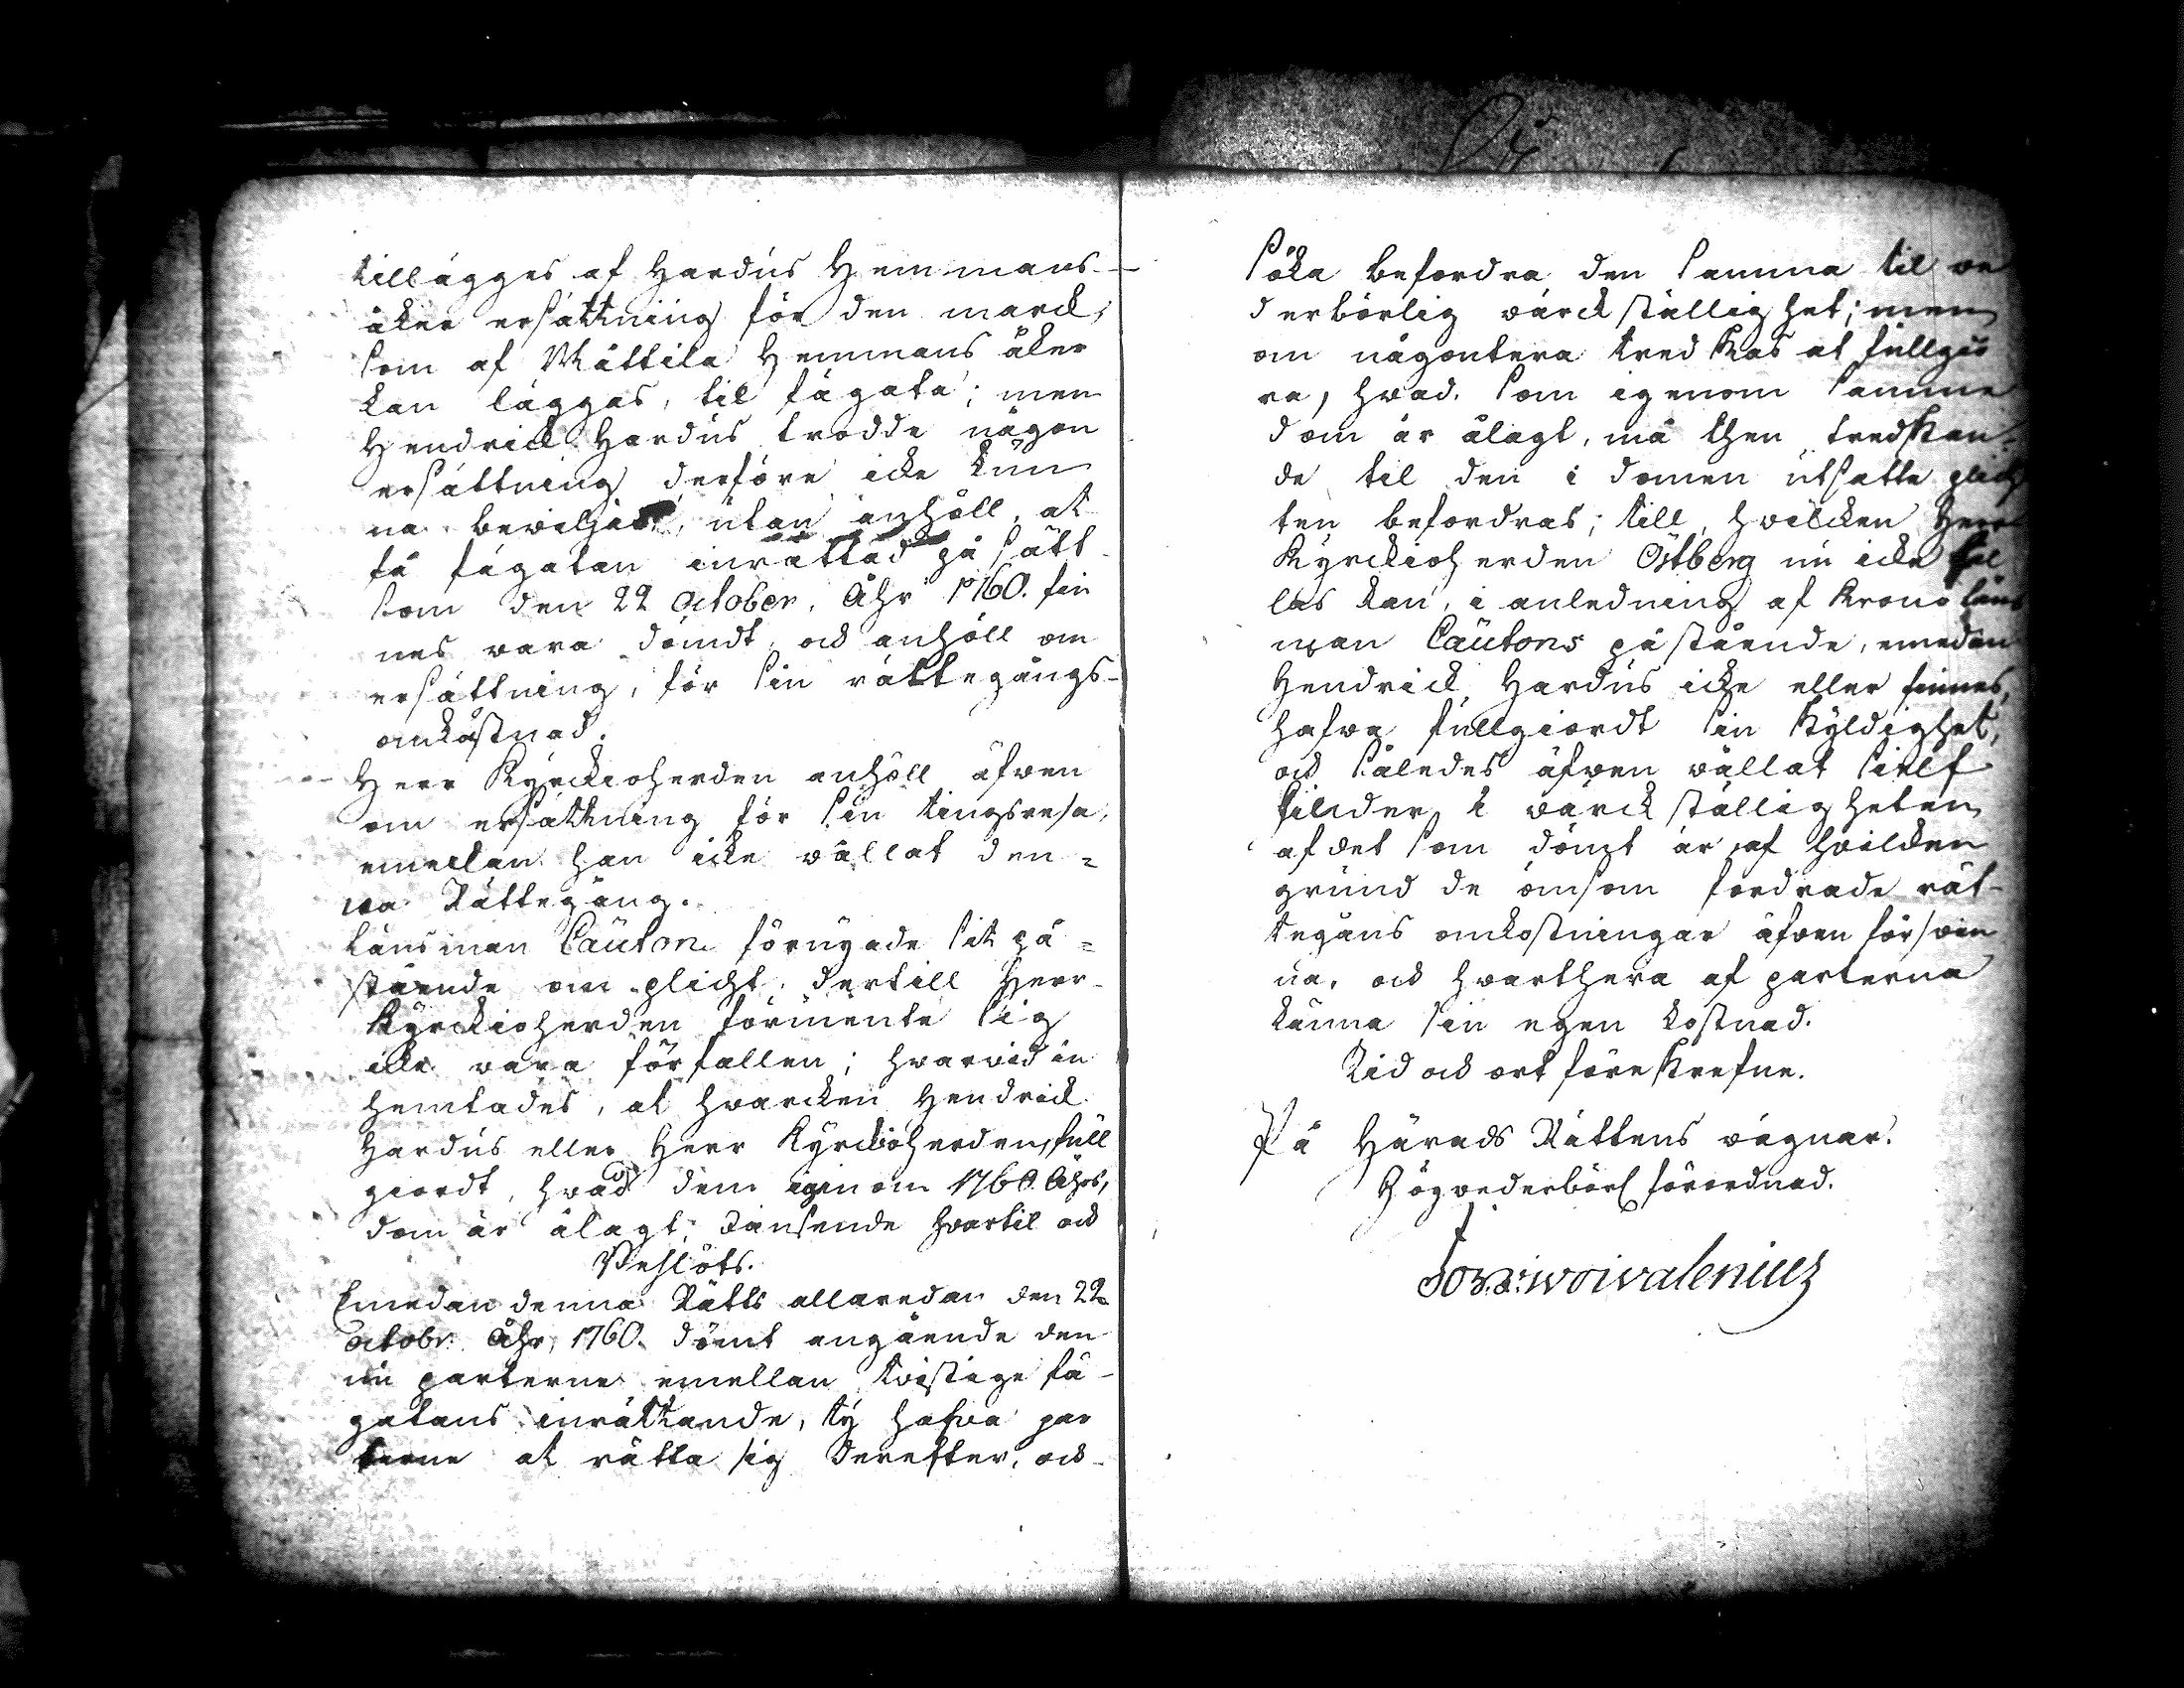 tillägges af Hardus Hemmans-
åker ersättning för den marck,
som af Mattila Hemmans åker
kan läggas, til fägata; men
Hendrick Hardus trodde någon
ersättning derföre icke kun
na beviljas, utan anhöll, at
få fägatan inrättad på sätt
som den 22 October. Åhr 1760. fin
nes vara dömdt, ock anhöll om
ersättning, för sin rättegångs-
omkostnad.
Herr Kyrckioherden anhöll äfwen
om ersättning för sin tingsresa,
emedan han icke wållat den=
na Rättegång.
Länsman Cauton förnyade sit på=
stående om plicht, dertill Herr
Kyrckioherden förmente sig
icke vara förfallen; hvarvid in
hemtades, at hvarcken Hendrick
Hardus eller Herr Kyrckioherden, full
giordt, hvad dem iginom 1760 Åhrs,
dom är ålagt; hvartil ock
Resl:ts.
Emedan denna Rätts allaredan den 22
octobr. Åhr, 1760. dömt angående den
nu parterne emellan twistige fä-
gatans inrättande, ty hafva par
terne at rätta sig derefter, ock
söka befordra den samma til ve
derbörlig värckställighet; men
om någontera tredskas at fullgiö
ra, hvad som igenom samme
dom är ålagt, må then tredskan=
de til den i domen utsatte plich
ten befordras; till, hvilcken Herr
Kyrckioherden Östberg nu icke fäl
las kan, i anledning af Krono läns
man Cautons påstående, emedan
Hendrick Hardus icke eller finnes,
hafva fullgiordt sin skyldighet,
ock således äfwen wållat sielf
hinder i wärckställigheten
af det som dömt är, af hvilcken
grund de omsom fordrade rät-
tegåns omkostningar äfwen förswin
na, ock hvarthera af parterna
känna sin egen kostnad.
Tid ock ort föreskrefne.
På Härads Rättens vägnar.
Högvederbörl förordnad.
woivalenius